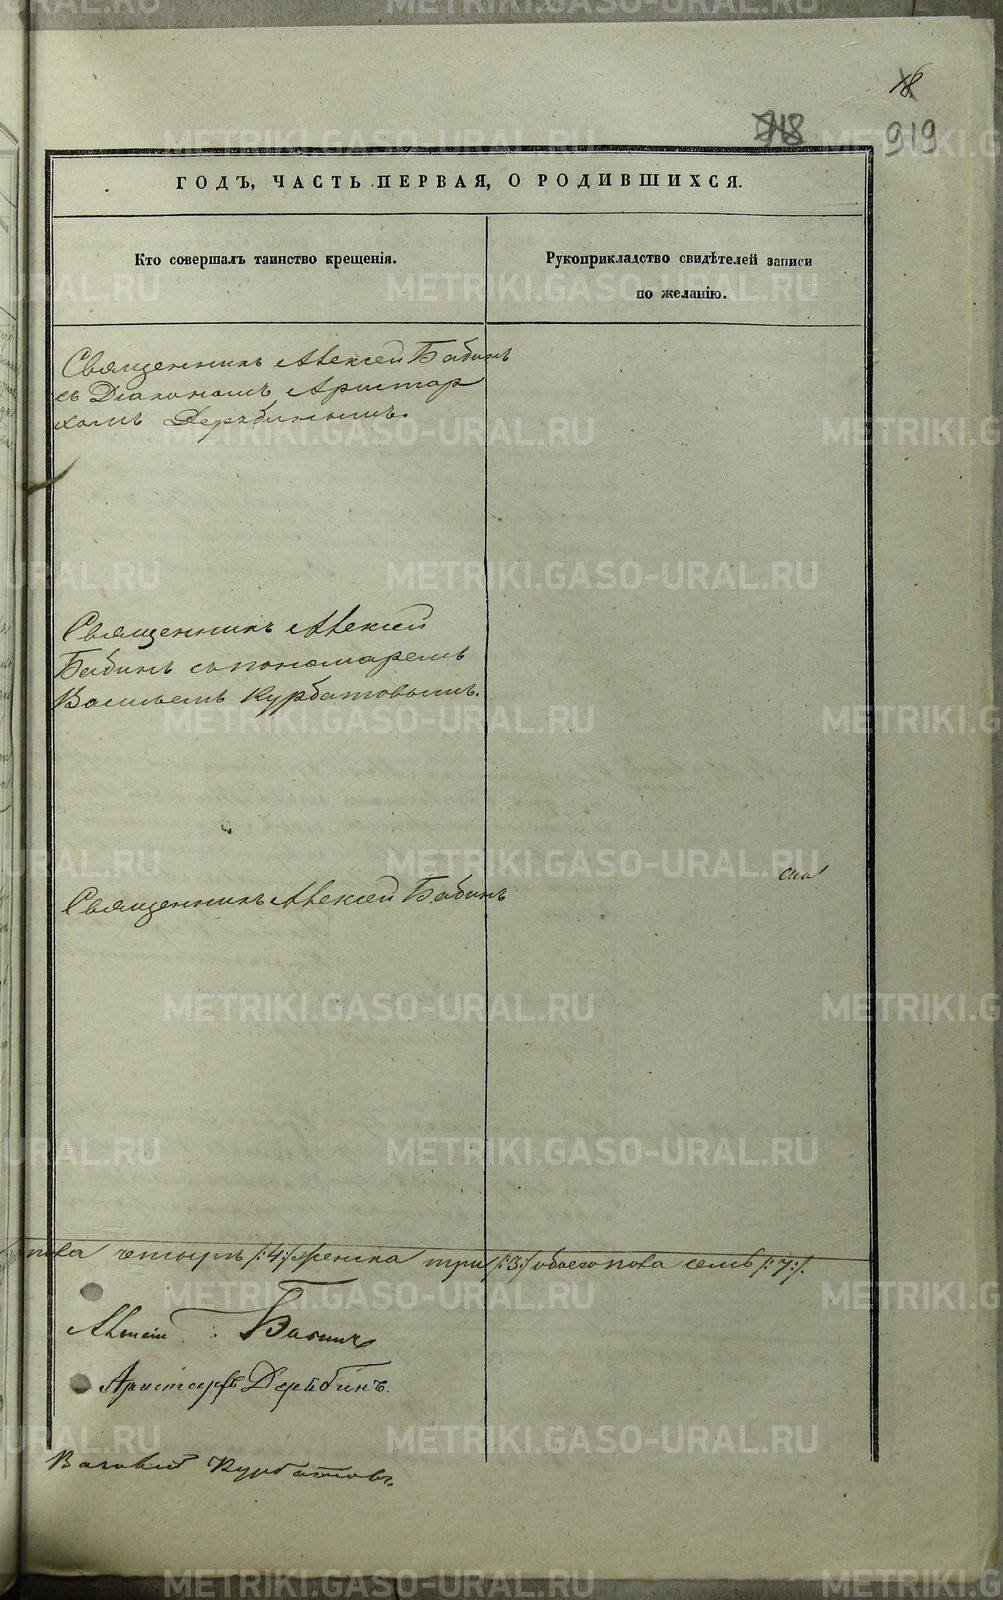 18
918
919
ГОДЪ, ЧАСТЬ ПЕРВАЯ, О РОДИВШИХСЯ.
Кто совершалъ таинство крещенія.
Рукоприкладство свидѣтелей записи
по желанію.
Священникъ Алексей Бабинъ
съ Діакономъ Аристар
хомъ Дерябинымъ.
Священникъ Алексей
Бабинъ съ пономаремъ
Васильемъ Курбатовымъ.
Священникъ Алексей Бабинъ
пола четыре /:4:/ женска три /:3:/ обоего пола семь /:7:/.
Алексей Бабинъ
Аристархъ Дерябинъ.
Василей Курбатовъ.
METRIKI.GASO-URAL.RU